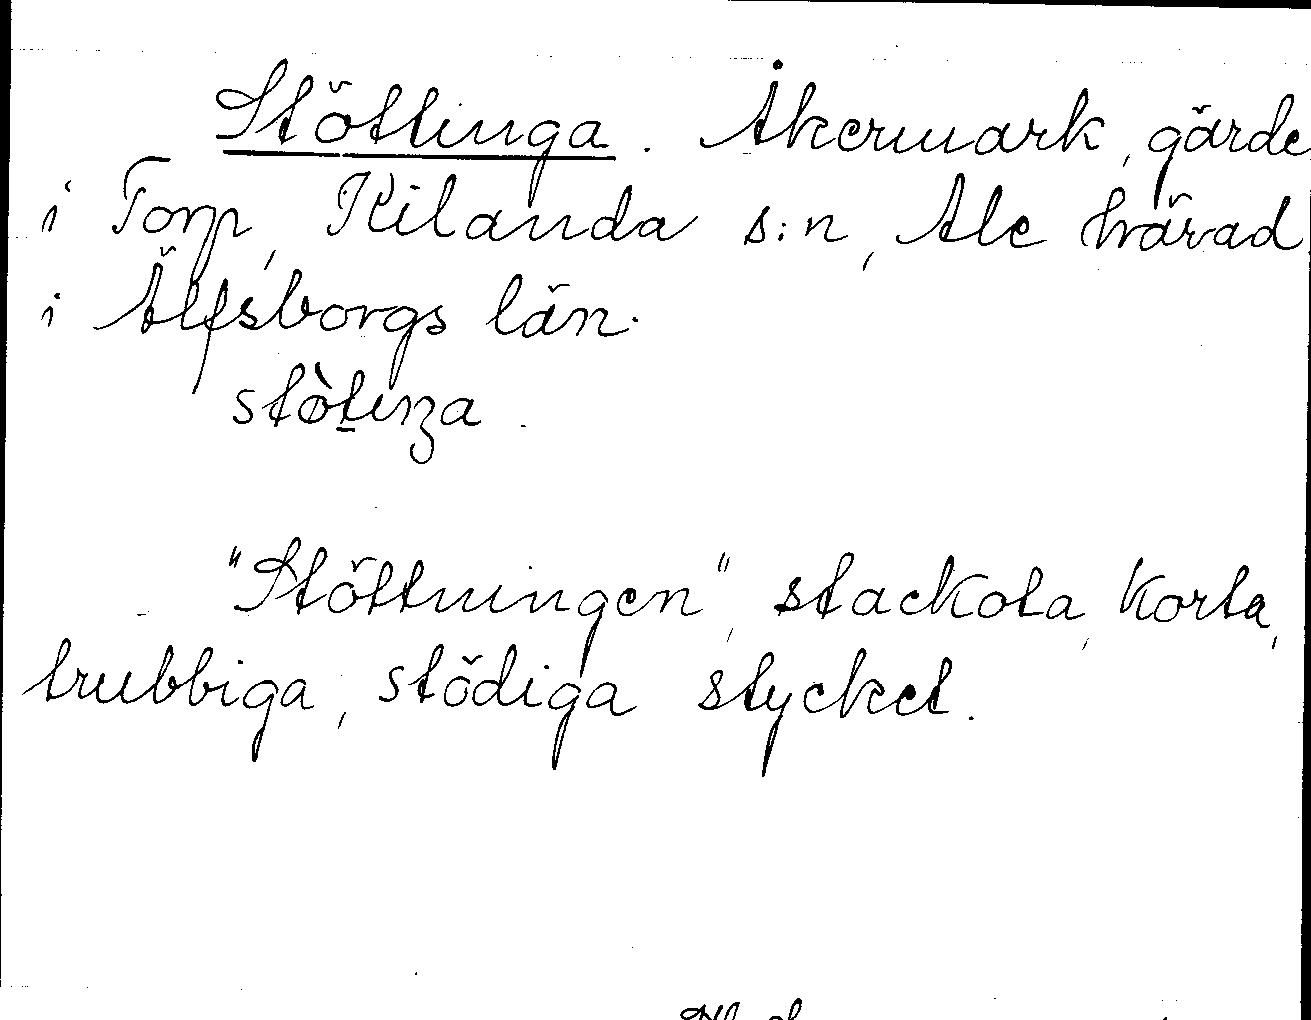 Stöttinga. Åkermark, gärde
i Torp, Kilanda s:n, Ale härad
i Älfsborgs län.
stòtiŋa.
"Stöttningen", stackota, korta,
trubbiga, stödiga stycket.